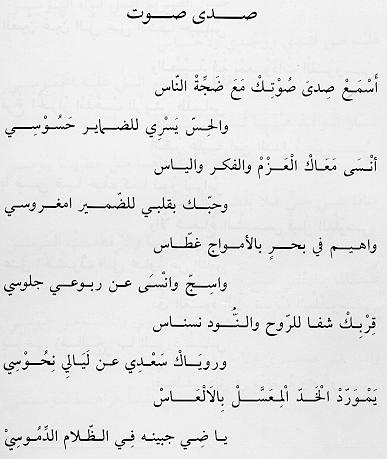 صدى صوت
أَسْمَعْ صِدىَ صُوْتِكْ مَعَ ضَجِّةْ النّاس
والحِسّ يَسْرِي للضماير حَسُوْسِـي
أنْسَى مَعَاكْ الْعَزْمْ والفكر والياس
وحبّك بقلبي للضّمير امغروسي
واهيم في بحرٍ بالأمواج غطّاس
واسِجّ وانْسَى عن ربوعي جلوسي
قِرْبِكْ شفا للرّوح والنُّود نسناس
ورويَاكْ سَعْدِي عن لَيَالِي نِحُوْسِي
يَمْوَرّدْ الْخَدّ الْمِعَسَّلْ بِالَالْعَاسْ
يا ضِي جبينه فِي الظّلام الدِّمُوسِيْ